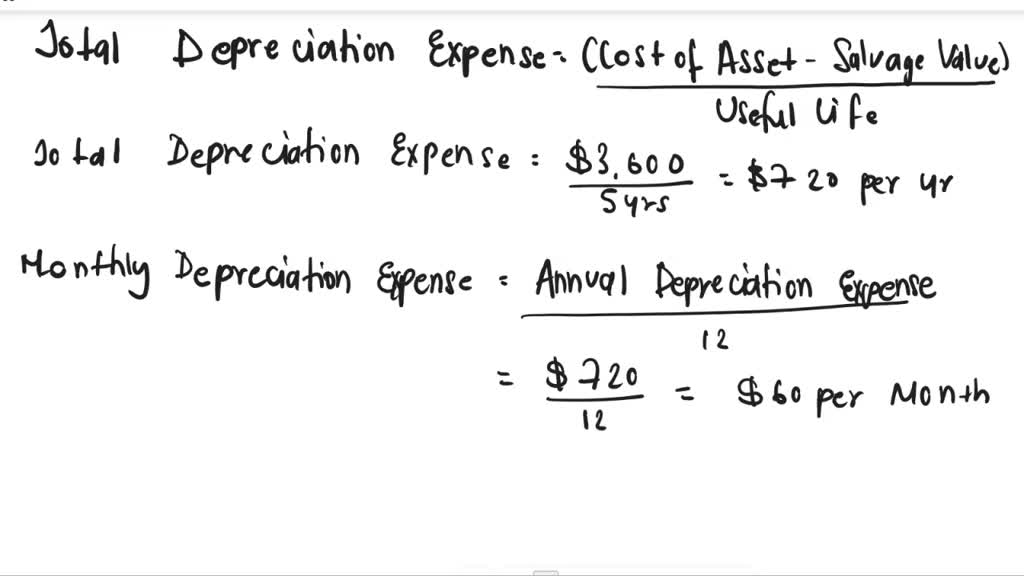 Total Depreciation Expense = (Cost of Asset - Salvage Value)
Useful Life
Total Depreciation Expense = $3,600 = $720 per yr
5 yrs
Monthly Depreciation Expense = Annual Depreciation Expense
12
= $720 = $60 per Month
12